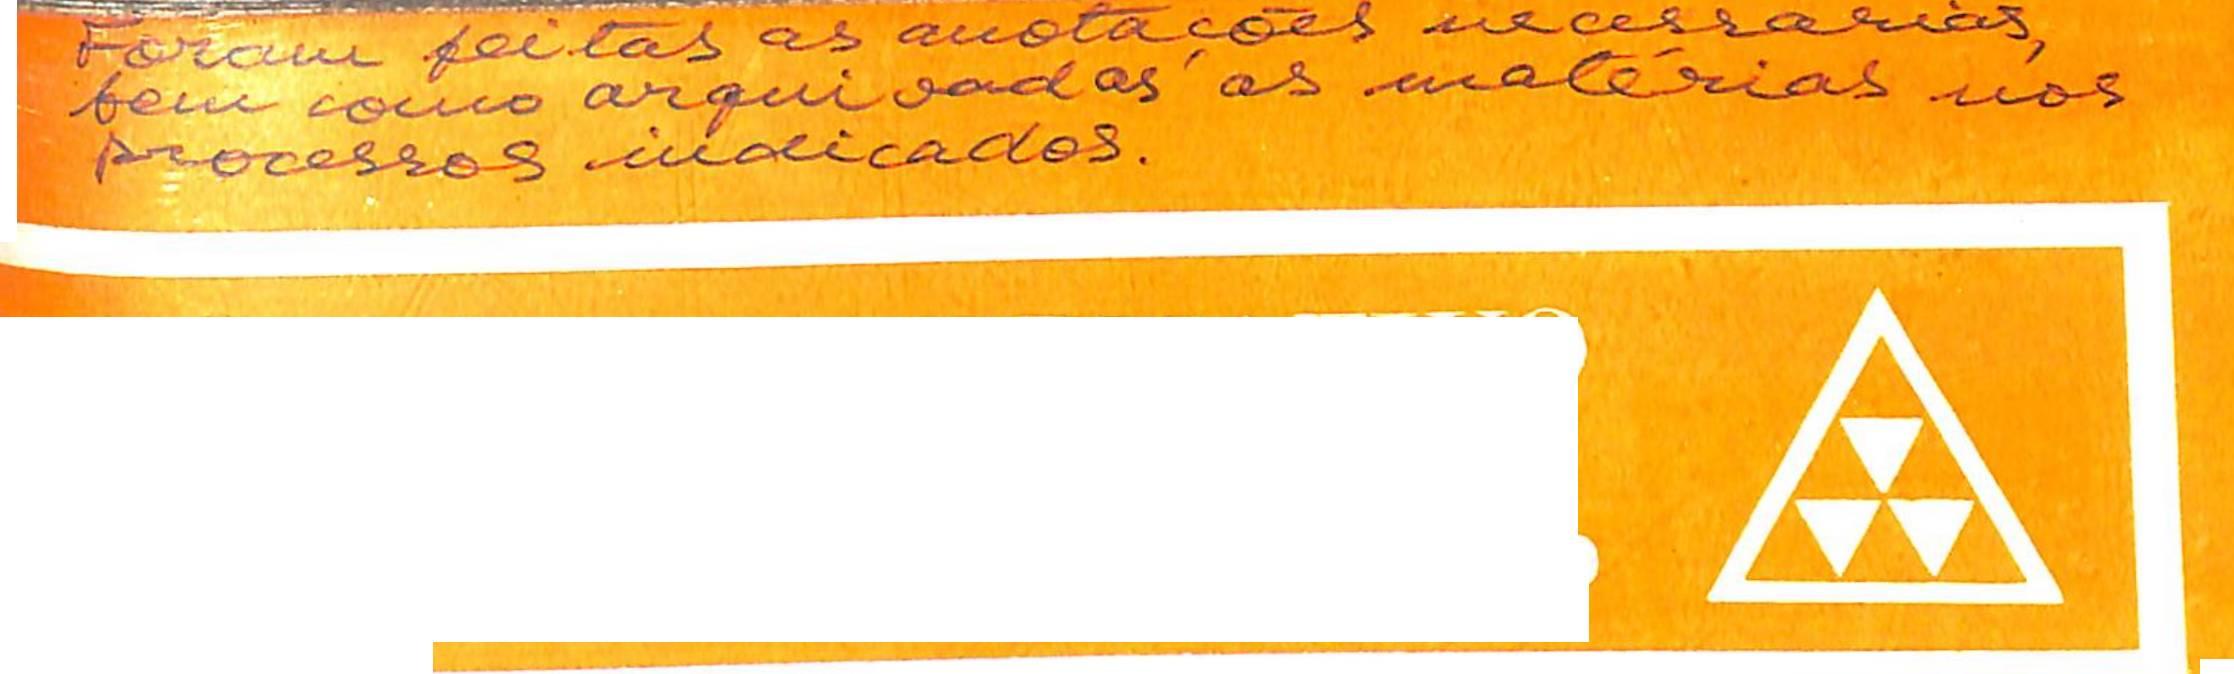 Foram feitas as anotações necessárias,
bem como arquivadas as matérias nos
processos indicados.